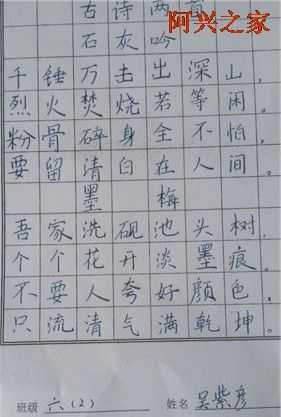 阿兴之家
古诗两首
石灰吟
千锤万击出深山，
烈火焚烧若等闲。
粉骨碎身全不怕，
要留清白在人间。
墨梅
吾家洗砚池头树，
个个花开淡墨痕。
不要人夸好颜色，
只流清气满乾坤。
班级 六（2） 姓名 吴紫彦